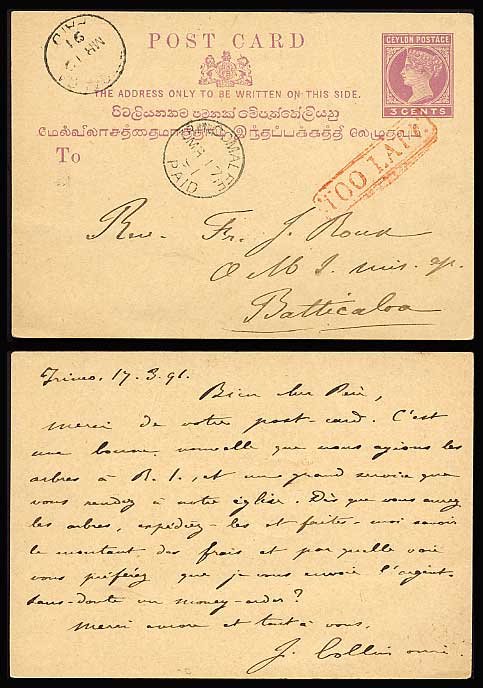 POST CARD
CEYLON POSTAGE
THE ADDRESS ONLY TO BE WRITTEN ON THIS SIDE.
5 CENTS
மேல்விலாசத்தைமாத்திரம் இந்தப்பக்கத்தி லெழுதவும்
To
PAID
MR 19
91
TRINCOMALEE
MR 17
91
PAID
TOO LATE
Rev. Fr. J. Roux
O M I. mis. ap.
Batticaloa
Trinco, 17.3.91.
Bien cher Père,
Merci de votre post-card. C'est
une bonne nouvelle que nous ayions les
arbres à R. I., et un grand service que
vous rendez à notre église. Dès que vous aurez
les arbres, expédiez-les et faites-moi savoir
le montant des frais et par quelle voie
vous préférez que je vous envoie l'argent.
Sans-doute un money-order?
Merci encore et tout à vous,
J. Collin omi.